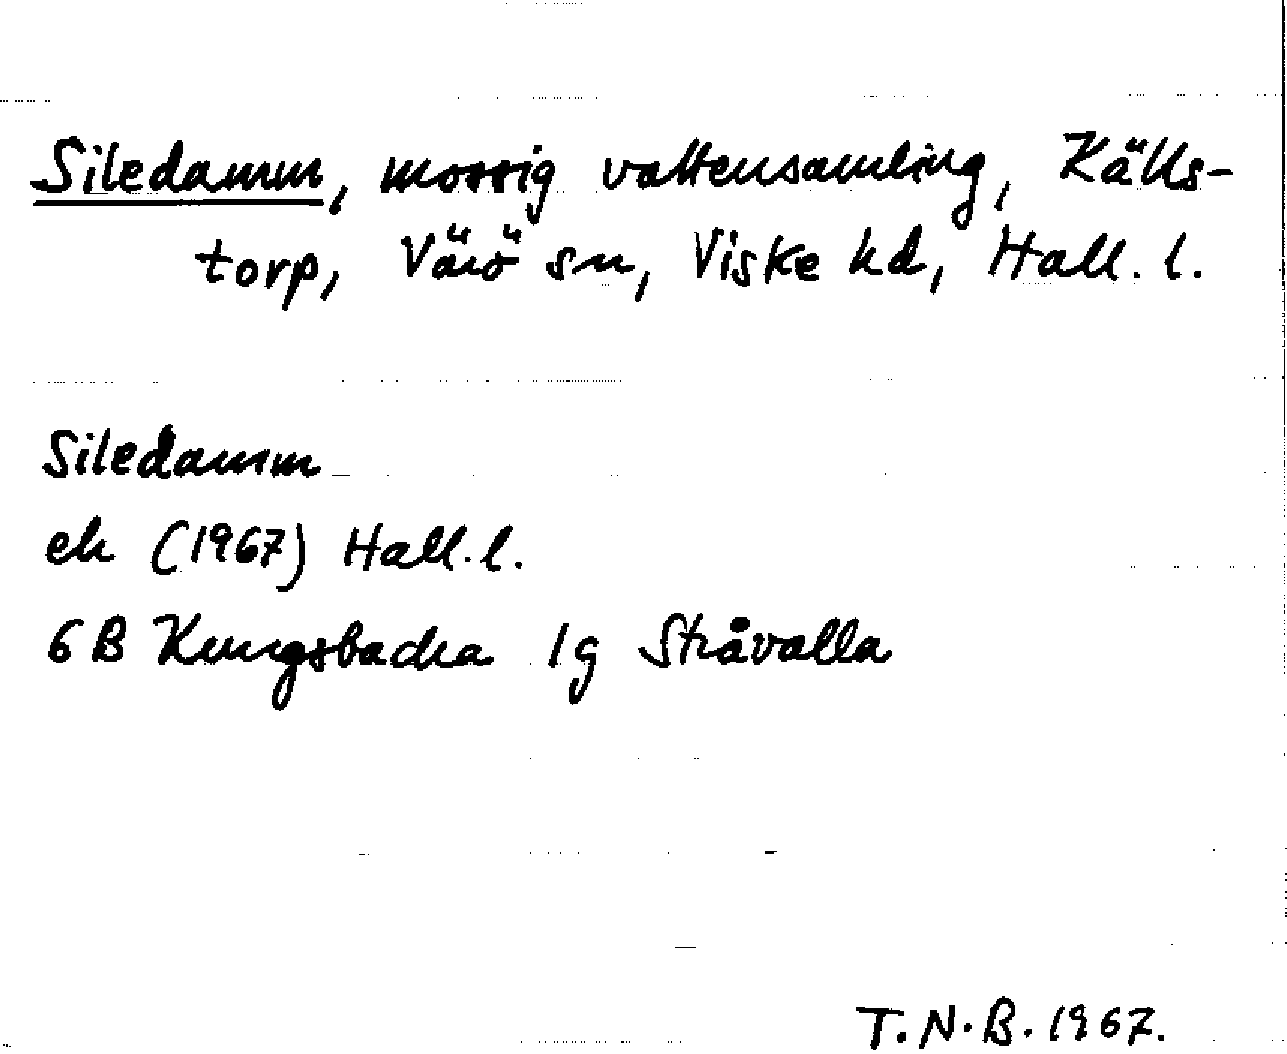 Siledamm, mossig vattensamling, Källs-
torp, Värö sn, Viske hd, Hall. l.
Siledamm
ek (1967) Hall. l.
6 B Kungsbacka 1g Stråvalla
T.N.B. 1967.